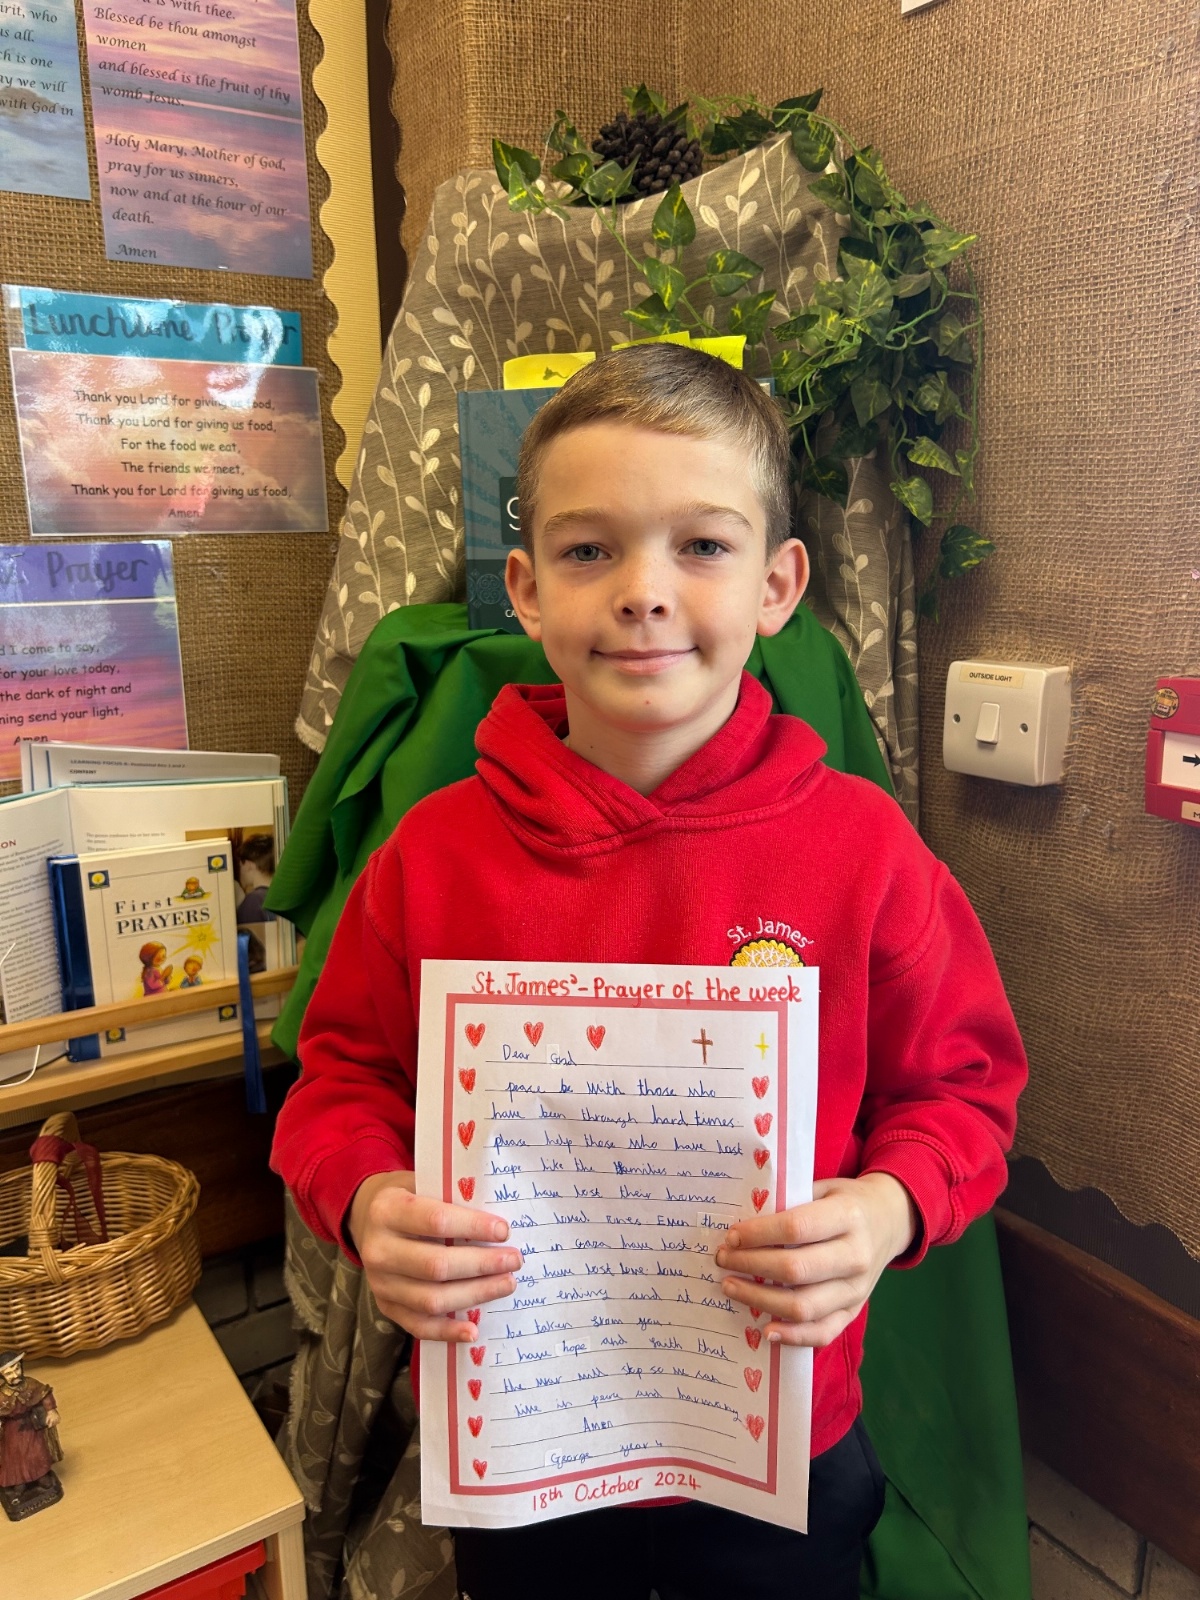 irit, who
us all.
ch is one
ay we will
with God in
is with thee.
Blessed be thou amongst
women
and blessed is the fruit of thy
womb Jesus.
Holy Mary, Mother of God,
pray for us sinners,
now and at the hour of our
death.
Amen
Lunchtime Prayer
Thank you Lord for giving us food,
Thank you Lord for giving us food,
For the food we eat,
The friends we meet,
Thank you for Lord for giving us food,
Amen
Prayer
d I come to say,
for your love today,
the dark of night and
ning send your light,
Amen
CONTENT
ON
First
PRAYERS
OUTSIDE LIGHT
St. James'
St. James' - Prayer of the week
Dear God
peace be with those who
have been through hard times
please help those who have lost
hope like the families in Gaza
who have lost their homes
and loved ones Even thou
ple in Gaza have lost so
hey have lost love. love is
never ending and it
be taken from you.
I have hope and faith that
the war will stop so we can
live in peace and harmony
Amen
George year 4
18th October 2024